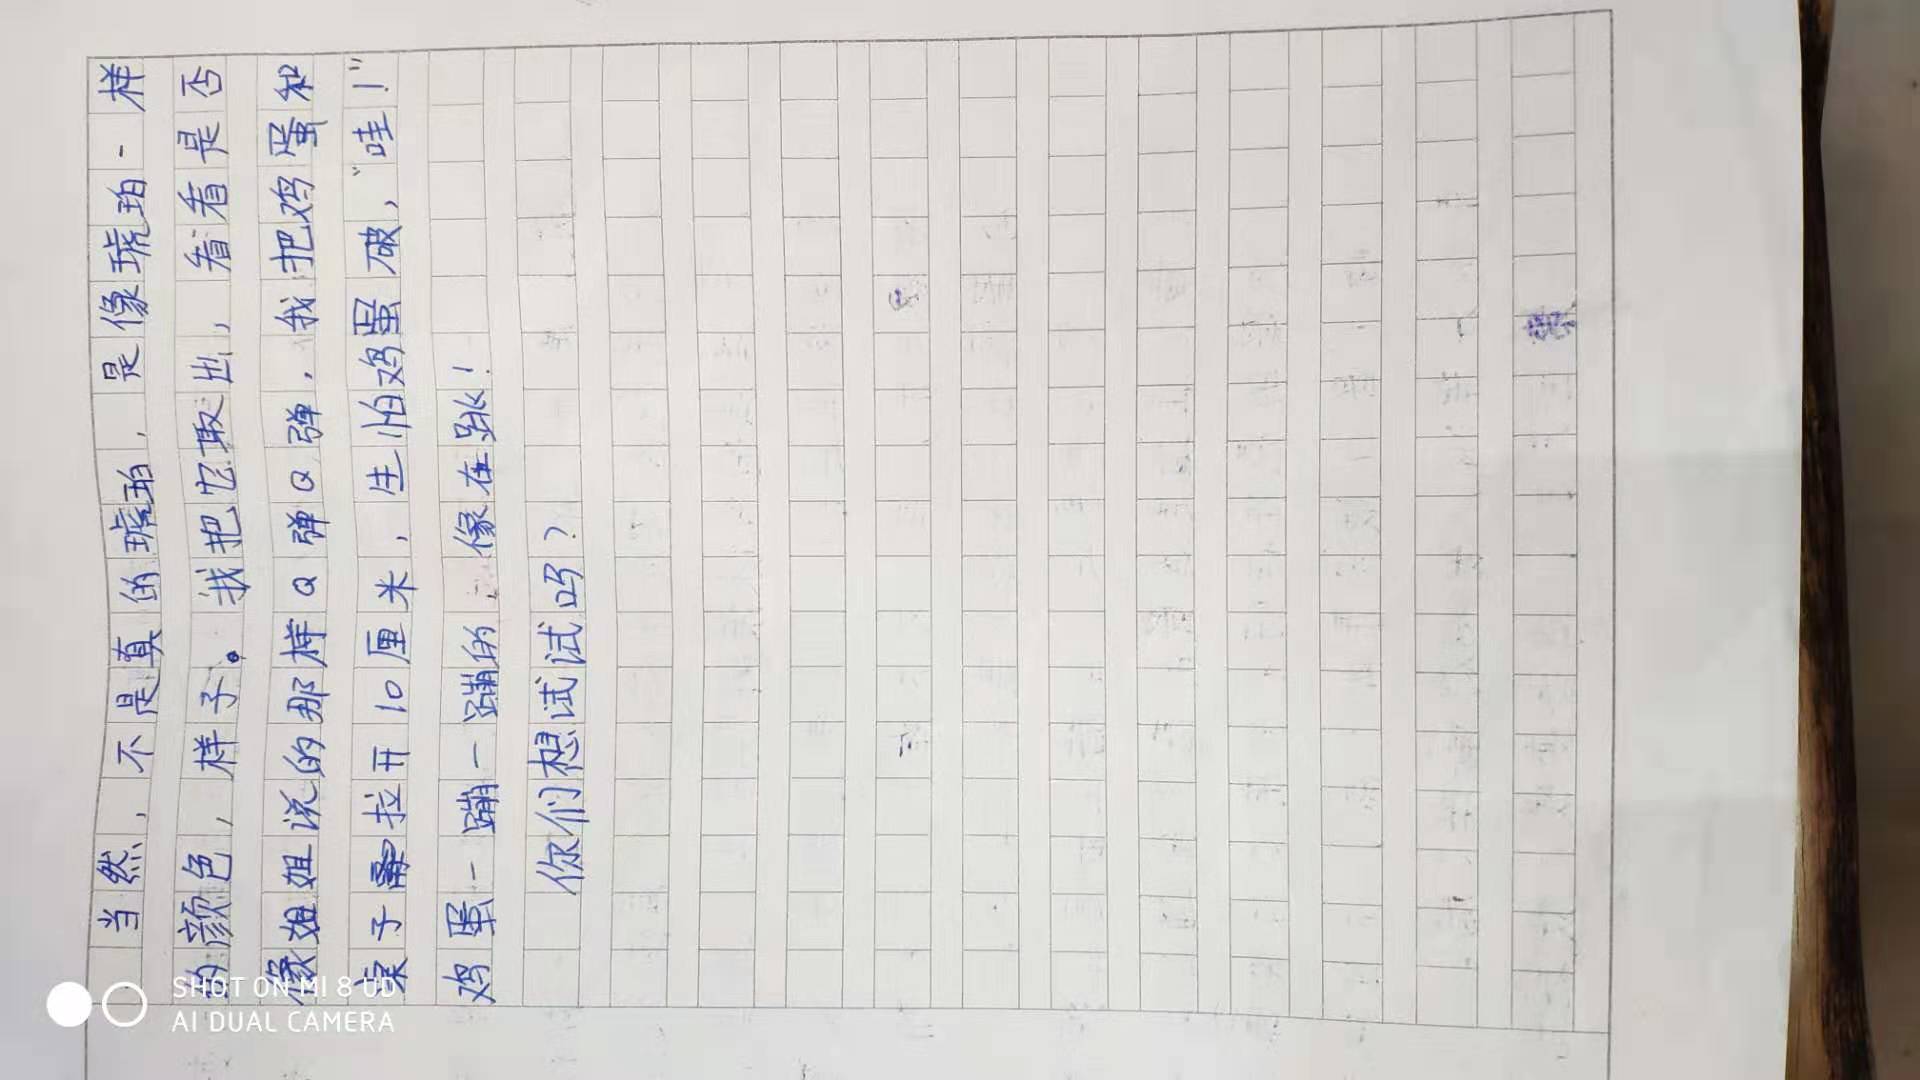 当然，不是真的琥珀，是像琥珀一样
的颜色，样子。我把它取出，看看是否
像姐姐说的那样Q弹Q弹，我把鸡蛋和
桌子拉开10厘米，生怕鸡蛋破，“哇！”
鸡蛋一蹦一蹦的，像在跳！
你们想试试吗？
SHOT ON MI 8 UD
AI DUAL CAMERA